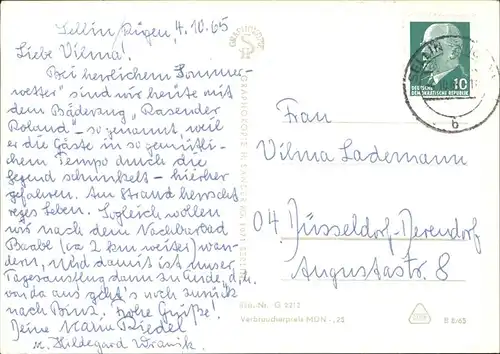 Sellin/Rügen, 4.10.65
Liebe Vilma!
Bei herrlichem Sommer-
wetter" sind wir heute mit
dem Bäderzug "Rasender
Roland" – so genannt, weil
er die Gäste in so gemütli-
chem Tempo durch die
Gegend schunkelt – hierher
gefahren. Am Strand herrscht
reges Leben. Sogleich wollen
wir nach dem Nachbarbad
Baabe (ca 2 km weiter) wan-
dern, und damit ist unser
Tagesausflug dann zu Ende, d.h.
von da aus geht's noch zurück
nach Binz. Frohe Grüße!
Deine Maria Riedel
u. Hildegard Wranik
GRAPHOKOPIE H. SANDER KG, 1071 BERLIN
DEUTSCHE
DEMOKRATISCHE REPUBLIK
10
SELLIN
b
Frau
Vilma Lademann
04 Düsseldorf-Derendorf
Augustastr. 8
Best.-Nr. G 2212
Verbraucherpreis MDN -,25
B 8/65